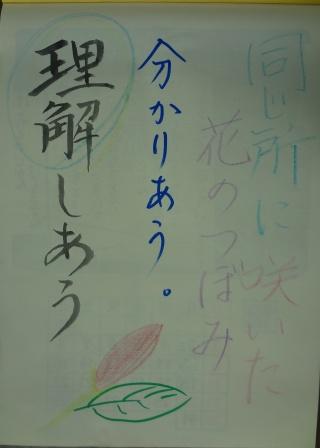 同じ所に咲いた
花のつぼみ
分かりあう。
理解しあう